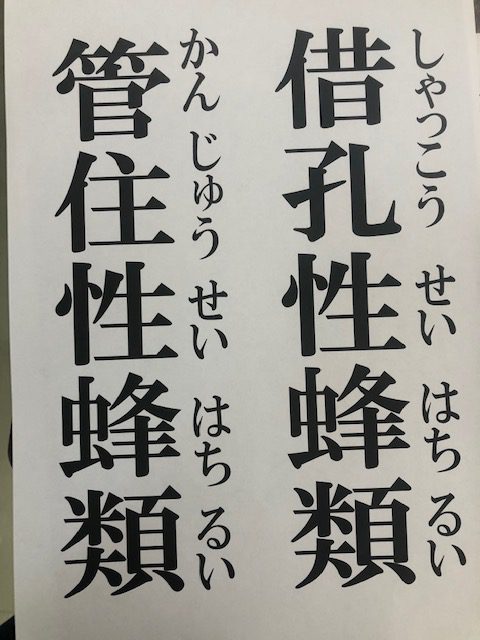 しゃっこう せい はち るい
借孔性蜂類
かん じゅう せい はち るい
管住性蜂類